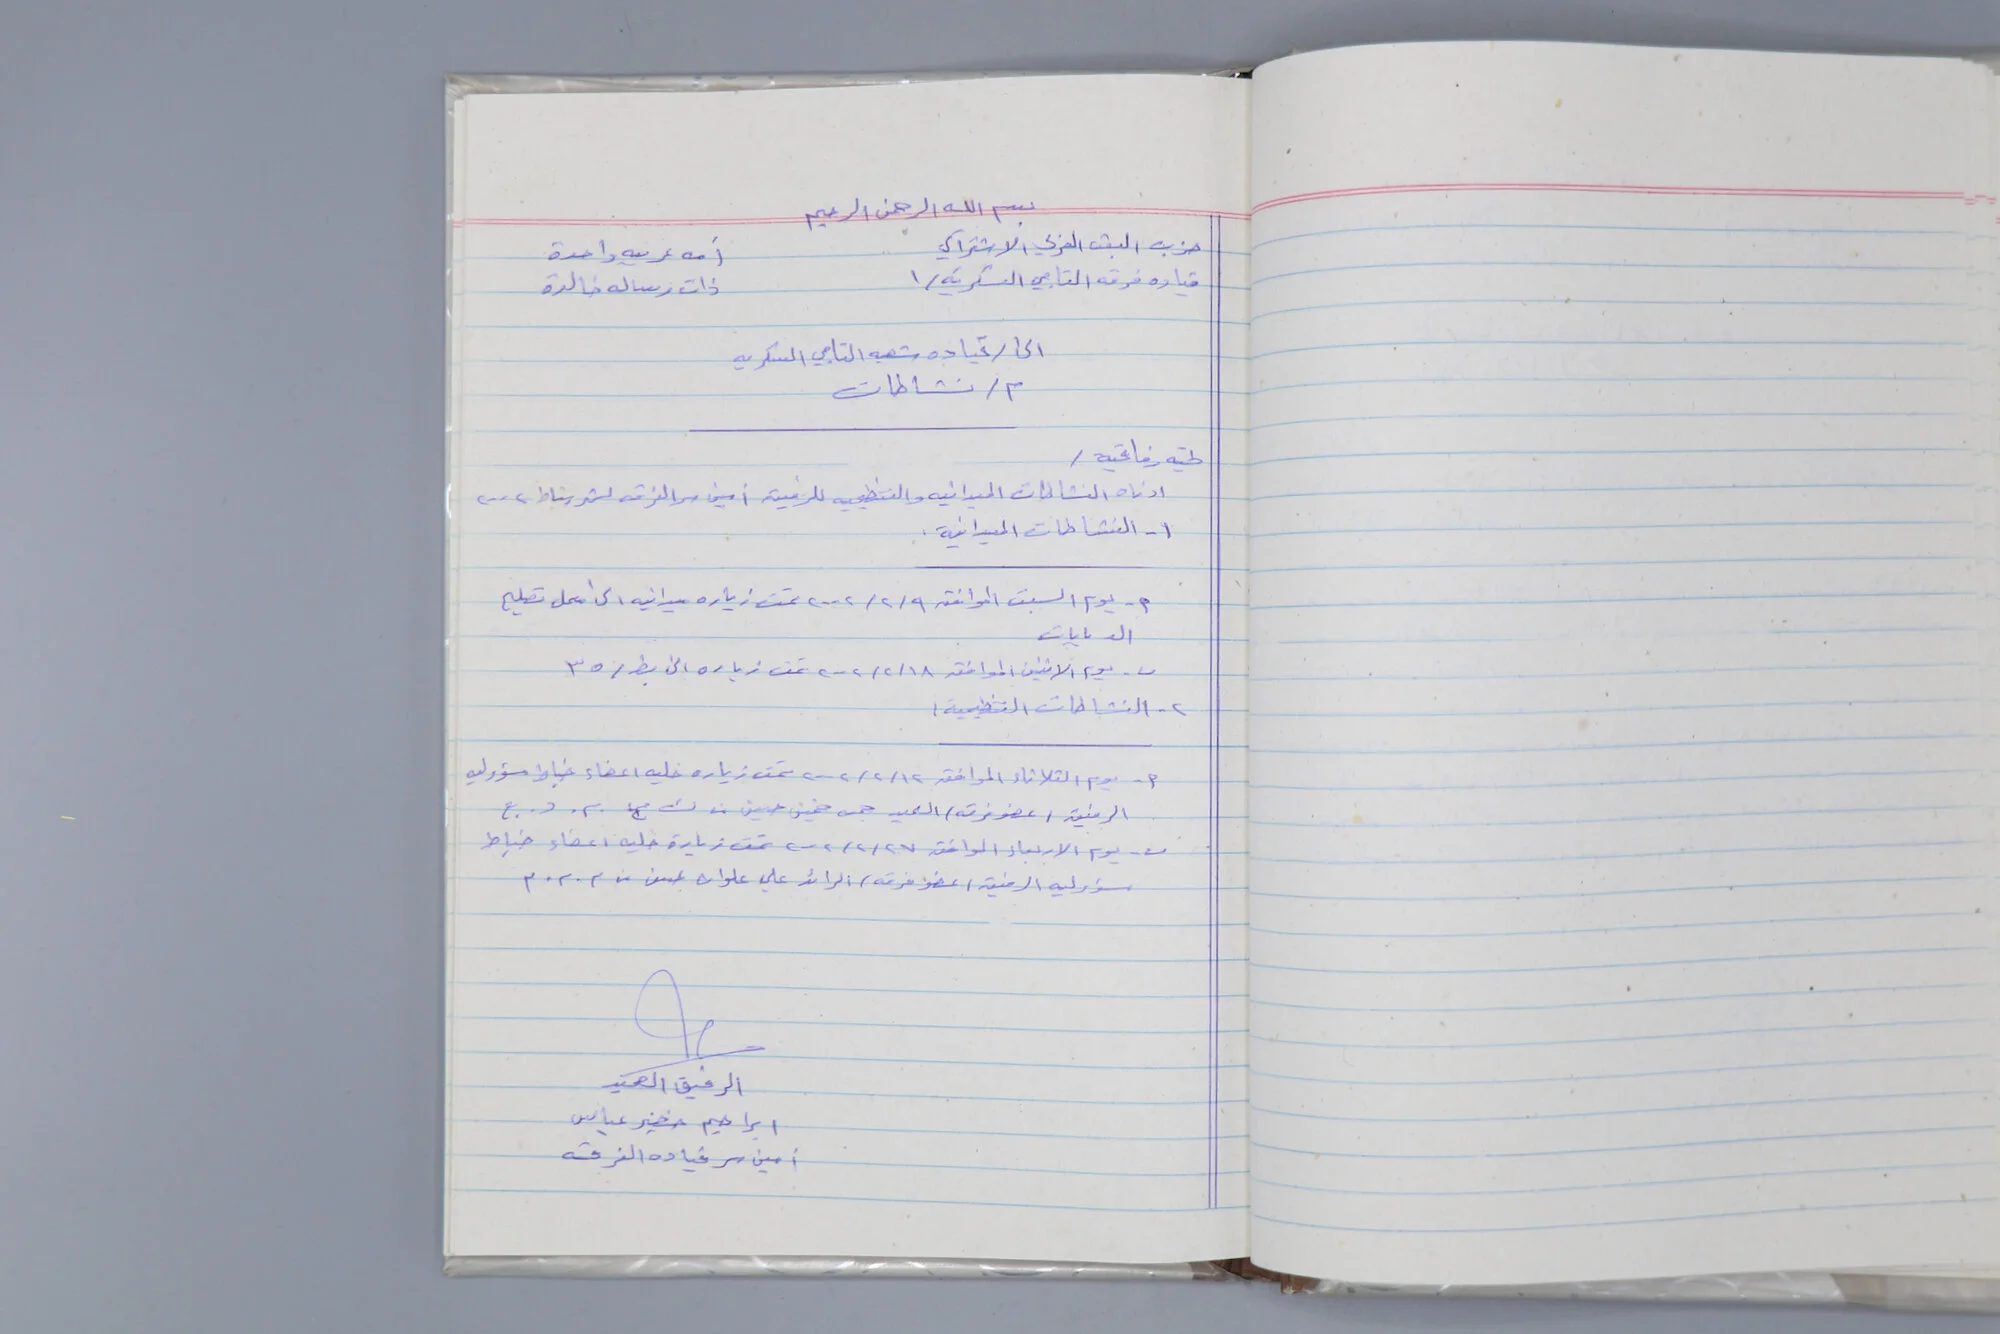 بسم الله الرحمن الرحيم
حزب البعث العربي الاشتراكي
أمه عربيه واحدة
قياده فرقه التاجي العسكرية/١
ذات رساله خالدة
الى/ قياده شعبه التاجي العسكريه
م/ نشاطات
تحيه رفاقيه/
ادناه النشاطات الميدانيه والتنظيميه للرفيق أمين سر الفرقه لشهر شباط ٢٠٠٢
١- النشاطات الميدانية:
م- يوم السبت الموافق ٢٠٠٢/٢/٩ تمت زياره ميدانيه الى معمل تصليح
الدبابات
ب- يوم الاثنين الموافق ٢٠٠٢/٢/١٨ تمت زياره الى بط/٣٥
٢- النشاطات التنظيمية:
م- يوم الثلاثاء الموافق ٢٠٠٢/٢/١٢ تمت زياره خليه اعضاء ضباط مسؤوليه
الرفيق/عضو فرقه/العميد حسين من م.و.ع
ب- يوم الاربعاء الموافق ٢٠٠٢/٢/٢٧ تمت زيارة خليه اعضاء ضباط
مسؤوليه الرفيق/عضو فرقه/الرائد علي علوان من م.م.م
الرفيق العميد
ابراهيم خضير عباس
أمين سر قياده الفرقه